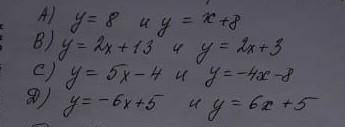 А) y = 8 и y = x+8
В) y = 2x+13 и y = 2x+3
С) y = 5x-4 и y = -4x-8
Д) y = -6x+5 и y = 6x+5